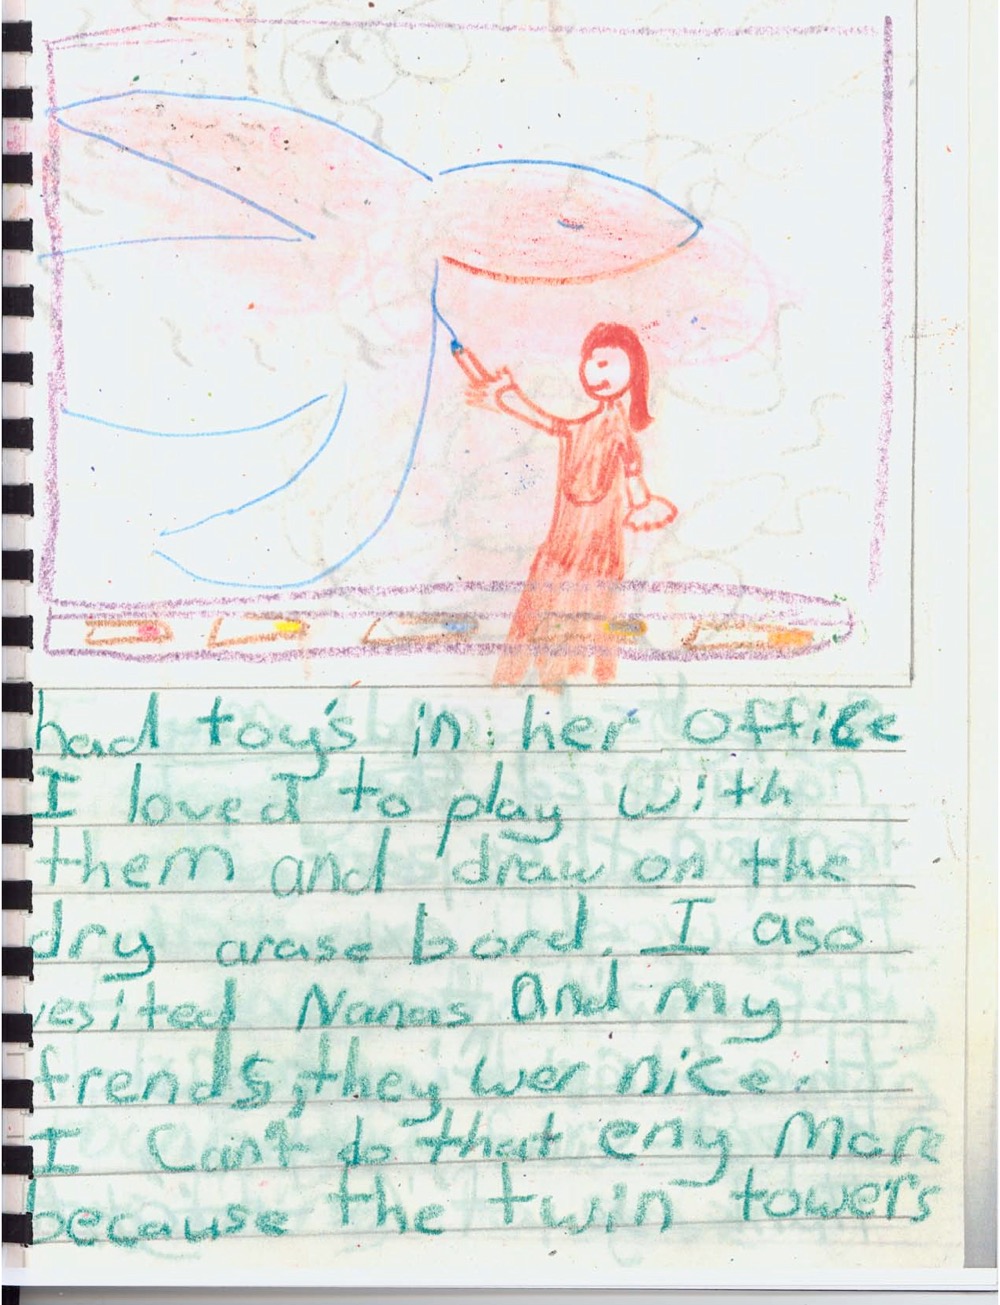 had toy's in her office
I loved to play with
them and draw on the
dry arase bord. I aso
vesited Nanas and my
frends, they wer nice.
I Can't do that eny More
because the twin towers